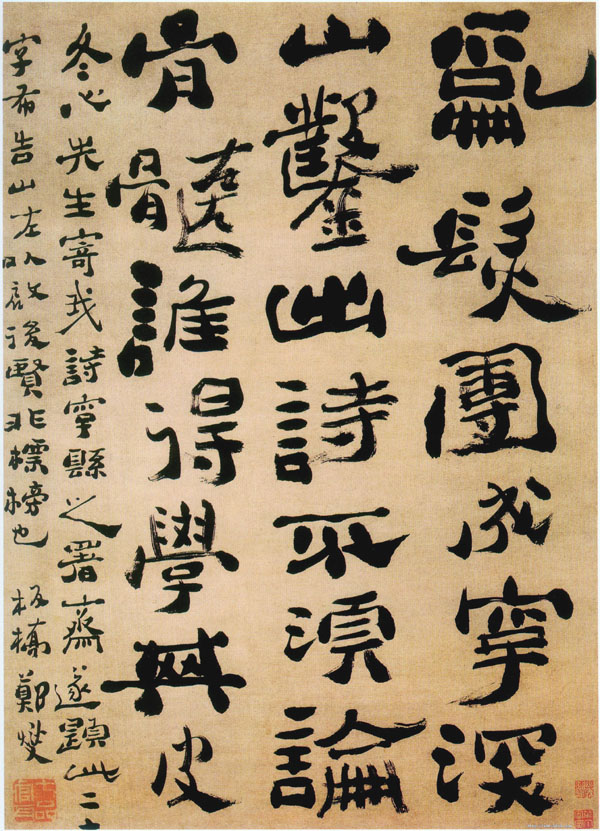 亂髮團成字深
山鑿出詩不須論
骨髓誰得學其皮
冬心先生寄我詩字縣之署齋遂題此二十
字布告山左以啟後賢非標榜也 板橋鄭燮